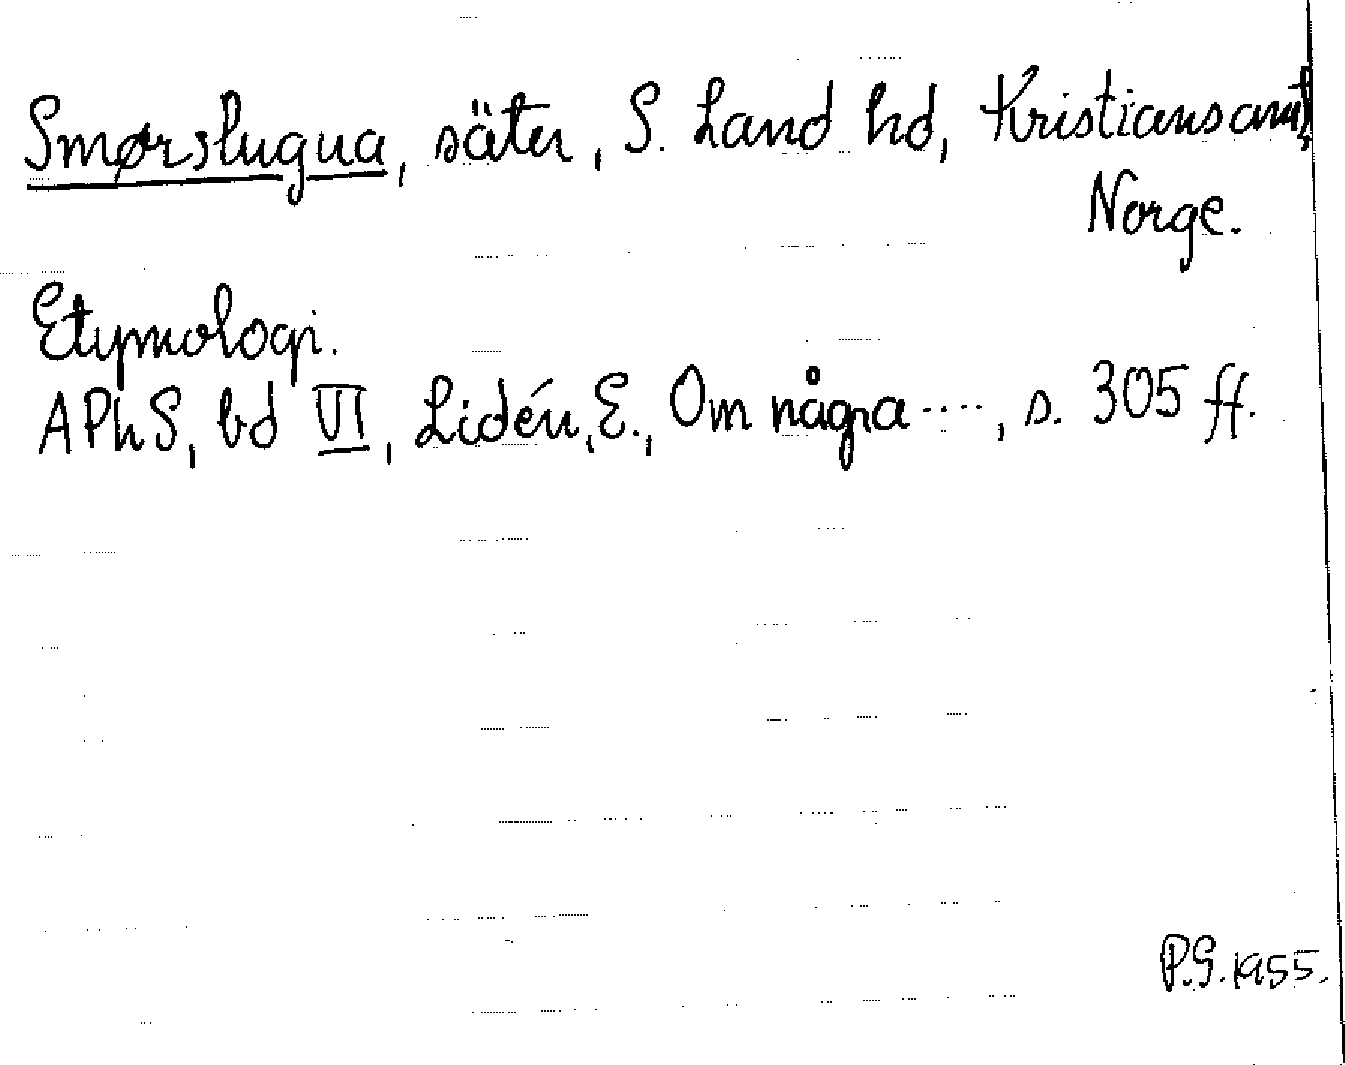 Smørslugua, säter, S. Land hd, Kristians amt,
Norge.
Etymologi.
APhS, bd VI, Lidén, E., Om några ...., s. 305 ff.
P.G. 1955.